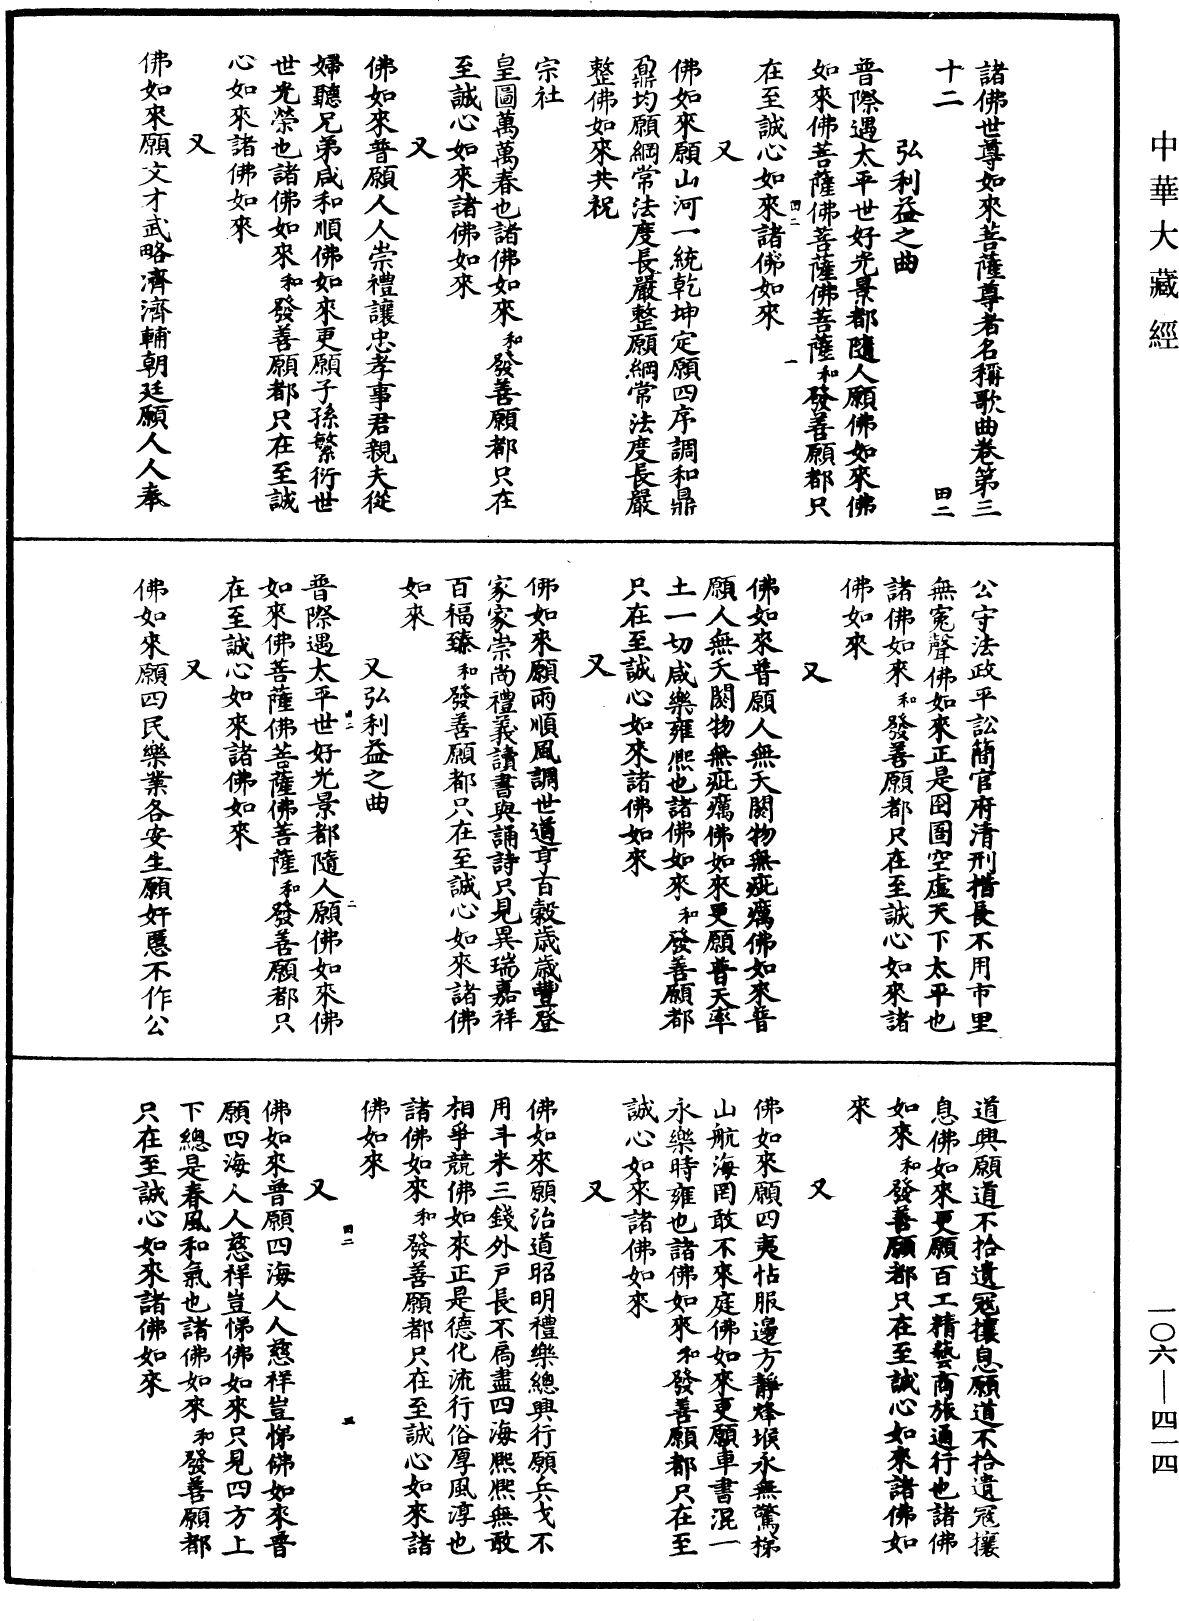 中華大藏經
諸佛世尊如來菩薩尊者名稱歌曲卷第三
十二
田二
弘利益之曲
普際遇太平世好光景都隨人願佛如來佛
如來佛菩薩佛菩薩佛菩薩和發善願都只
在至誠心如來諸佛如來
田二
一
又
佛如來願山河一統乾坤定願四序調和鼎
鼐均願綱常法度長嚴整願綱常法度長嚴
整佛如來共祝
宗社
皇圖萬萬春也諸佛如來和發善願都只在
至誠心如來諸佛如來
又
佛如來普願人人崇禮讓忠孝事君親夫從
婦聽兄弟咸和順佛如來更願子孫繁衍世
世光榮也諸佛如來和發善願都只在至誠
心如來諸佛如來
又
佛如來願文才武略濟濟輔朝廷願人人奉
公守法政平訟簡官府清刑措長不用市里
無冤聲佛如來正是囹圄空虛天下太平也
諸佛如來和發善願都只在至誠心如來諸
佛如來
又
佛如來普願人無夭閼物無疵癘佛如來普
願人無夭閼物無疵癘佛如來更願普天率
土一切咸樂雍熙也諸佛如來和發善願都
只在至誠心如來諸佛如來
又
佛如來願雨順風調世道亨百穀歲歲豐登
家家崇尚禮義讀書與誦詩只見異瑞嘉祥
百福臻和發善願都只在至誠心如來諸佛
如來
又弘利益之曲
田二
二
普際遇太平世好光景都隨人願佛如來佛
如來佛菩薩佛菩薩佛菩薩和發善願都只
在至誠心如來諸佛如來
又
佛如來願四民樂業各安生願奸慝不作公
道興願道不拾遺寇攘息願道不拾遺寇攘
息佛如來更願百工精藝商旅通行也諸佛
如來和發善願都只在至誠心如來諸佛如
來
又
佛如來願四夷怗服邊方靜烽堠永無驚梯
山航海罔敢不來庭佛如來更願車書混一
永樂時雍也諸佛如來和發善願都只在至
誠心如來諸佛如來
又
佛如來願治道昭明禮樂總興行願兵戈不
用斗米三錢外戶長不扃盡四海熙熙無敢
相爭競佛如來正是德化流行俗厚風淳也
諸佛如來和發善願都只在至誠心如來諸
佛如來
田二
三
又
佛如來普願四海人人慈祥豈悌佛如來普
願四海人人慈祥豈悌佛如來只見四方上
下總是春風和氣也諸佛如來和發善願都
只在至誠心如來諸佛如來
一〇六—四一四